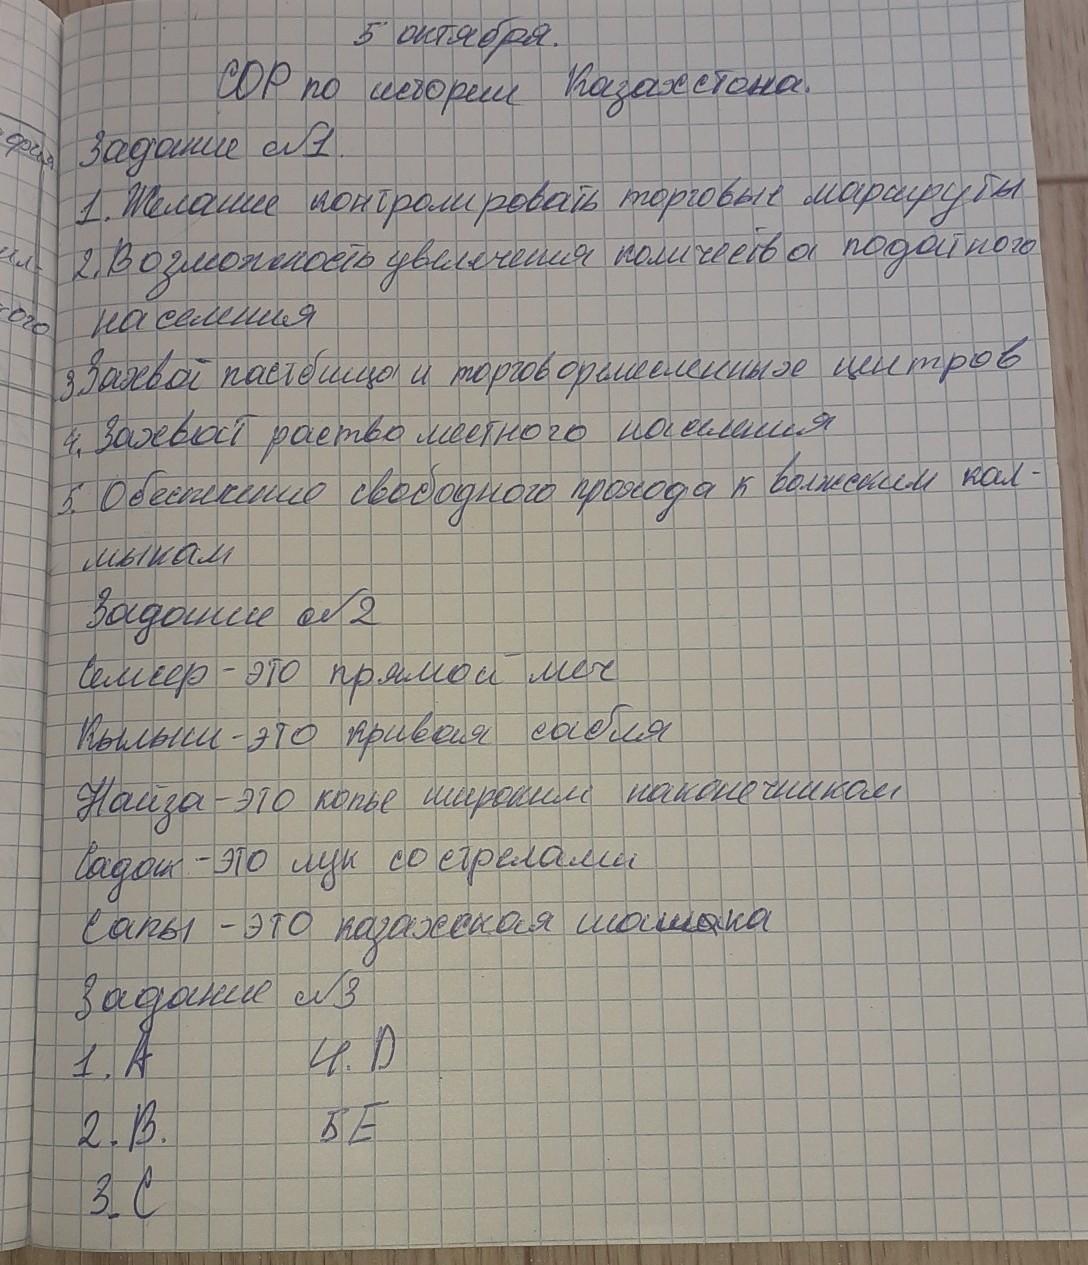 5 октября.
СОР по истории Казахстана.
Задание №1.
1. Желание контролировать торговые маршруты
2. Возможность увеличения количества податного
населения
3 Захват пастбища и торговоремесленных центров
4. Захват раство местного населения
5. Обеспечение свободного прохода к волжским кал-
мыкам
Задание №2
Семсер - это прямой меч
Кылыш - это кривая сабля
Найза - это копье широким наконечником
Садак - это лук со стрелами
Сапы - это казахская шашка
Задание №3
1. А 4. D
2. В. 5 Е
3. С
ого